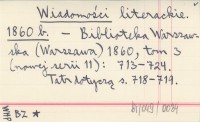 Wiadomości literackie.
1860 b. – Biblioteka Warszaw-
ska (Warszawa) 1860, tom 3
(nowej serii 11): 713–724.
Tatr dotyczą s. 718–719.
WHP
BZ *